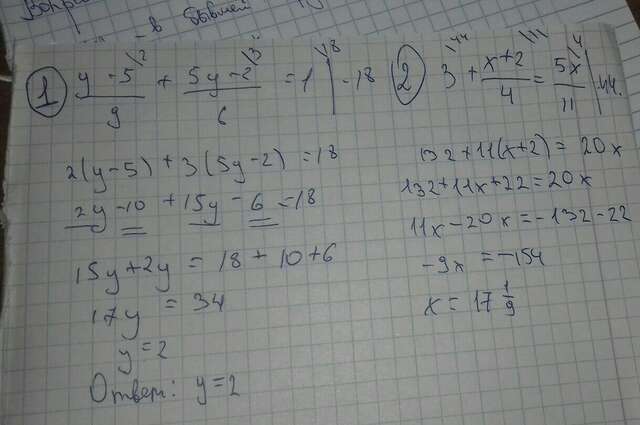 - в бывшей
1 (y-5)/9 \2 + (5y-2)/6 \3 = 1 \18 | ·18
2(y-5)+3(5y-2)=18
2y-10+15y-6=18
15y+2y=18+10+6
17y=34
y=2
Ответ: y=2
2 3 \44 + (x+2)/4 \11 = 5x/11 \4 | ·44.
132+11(x+2)=20x
132+11x+22=20x
11x-20x=-132-22
-9x=-154
x=17 1/9